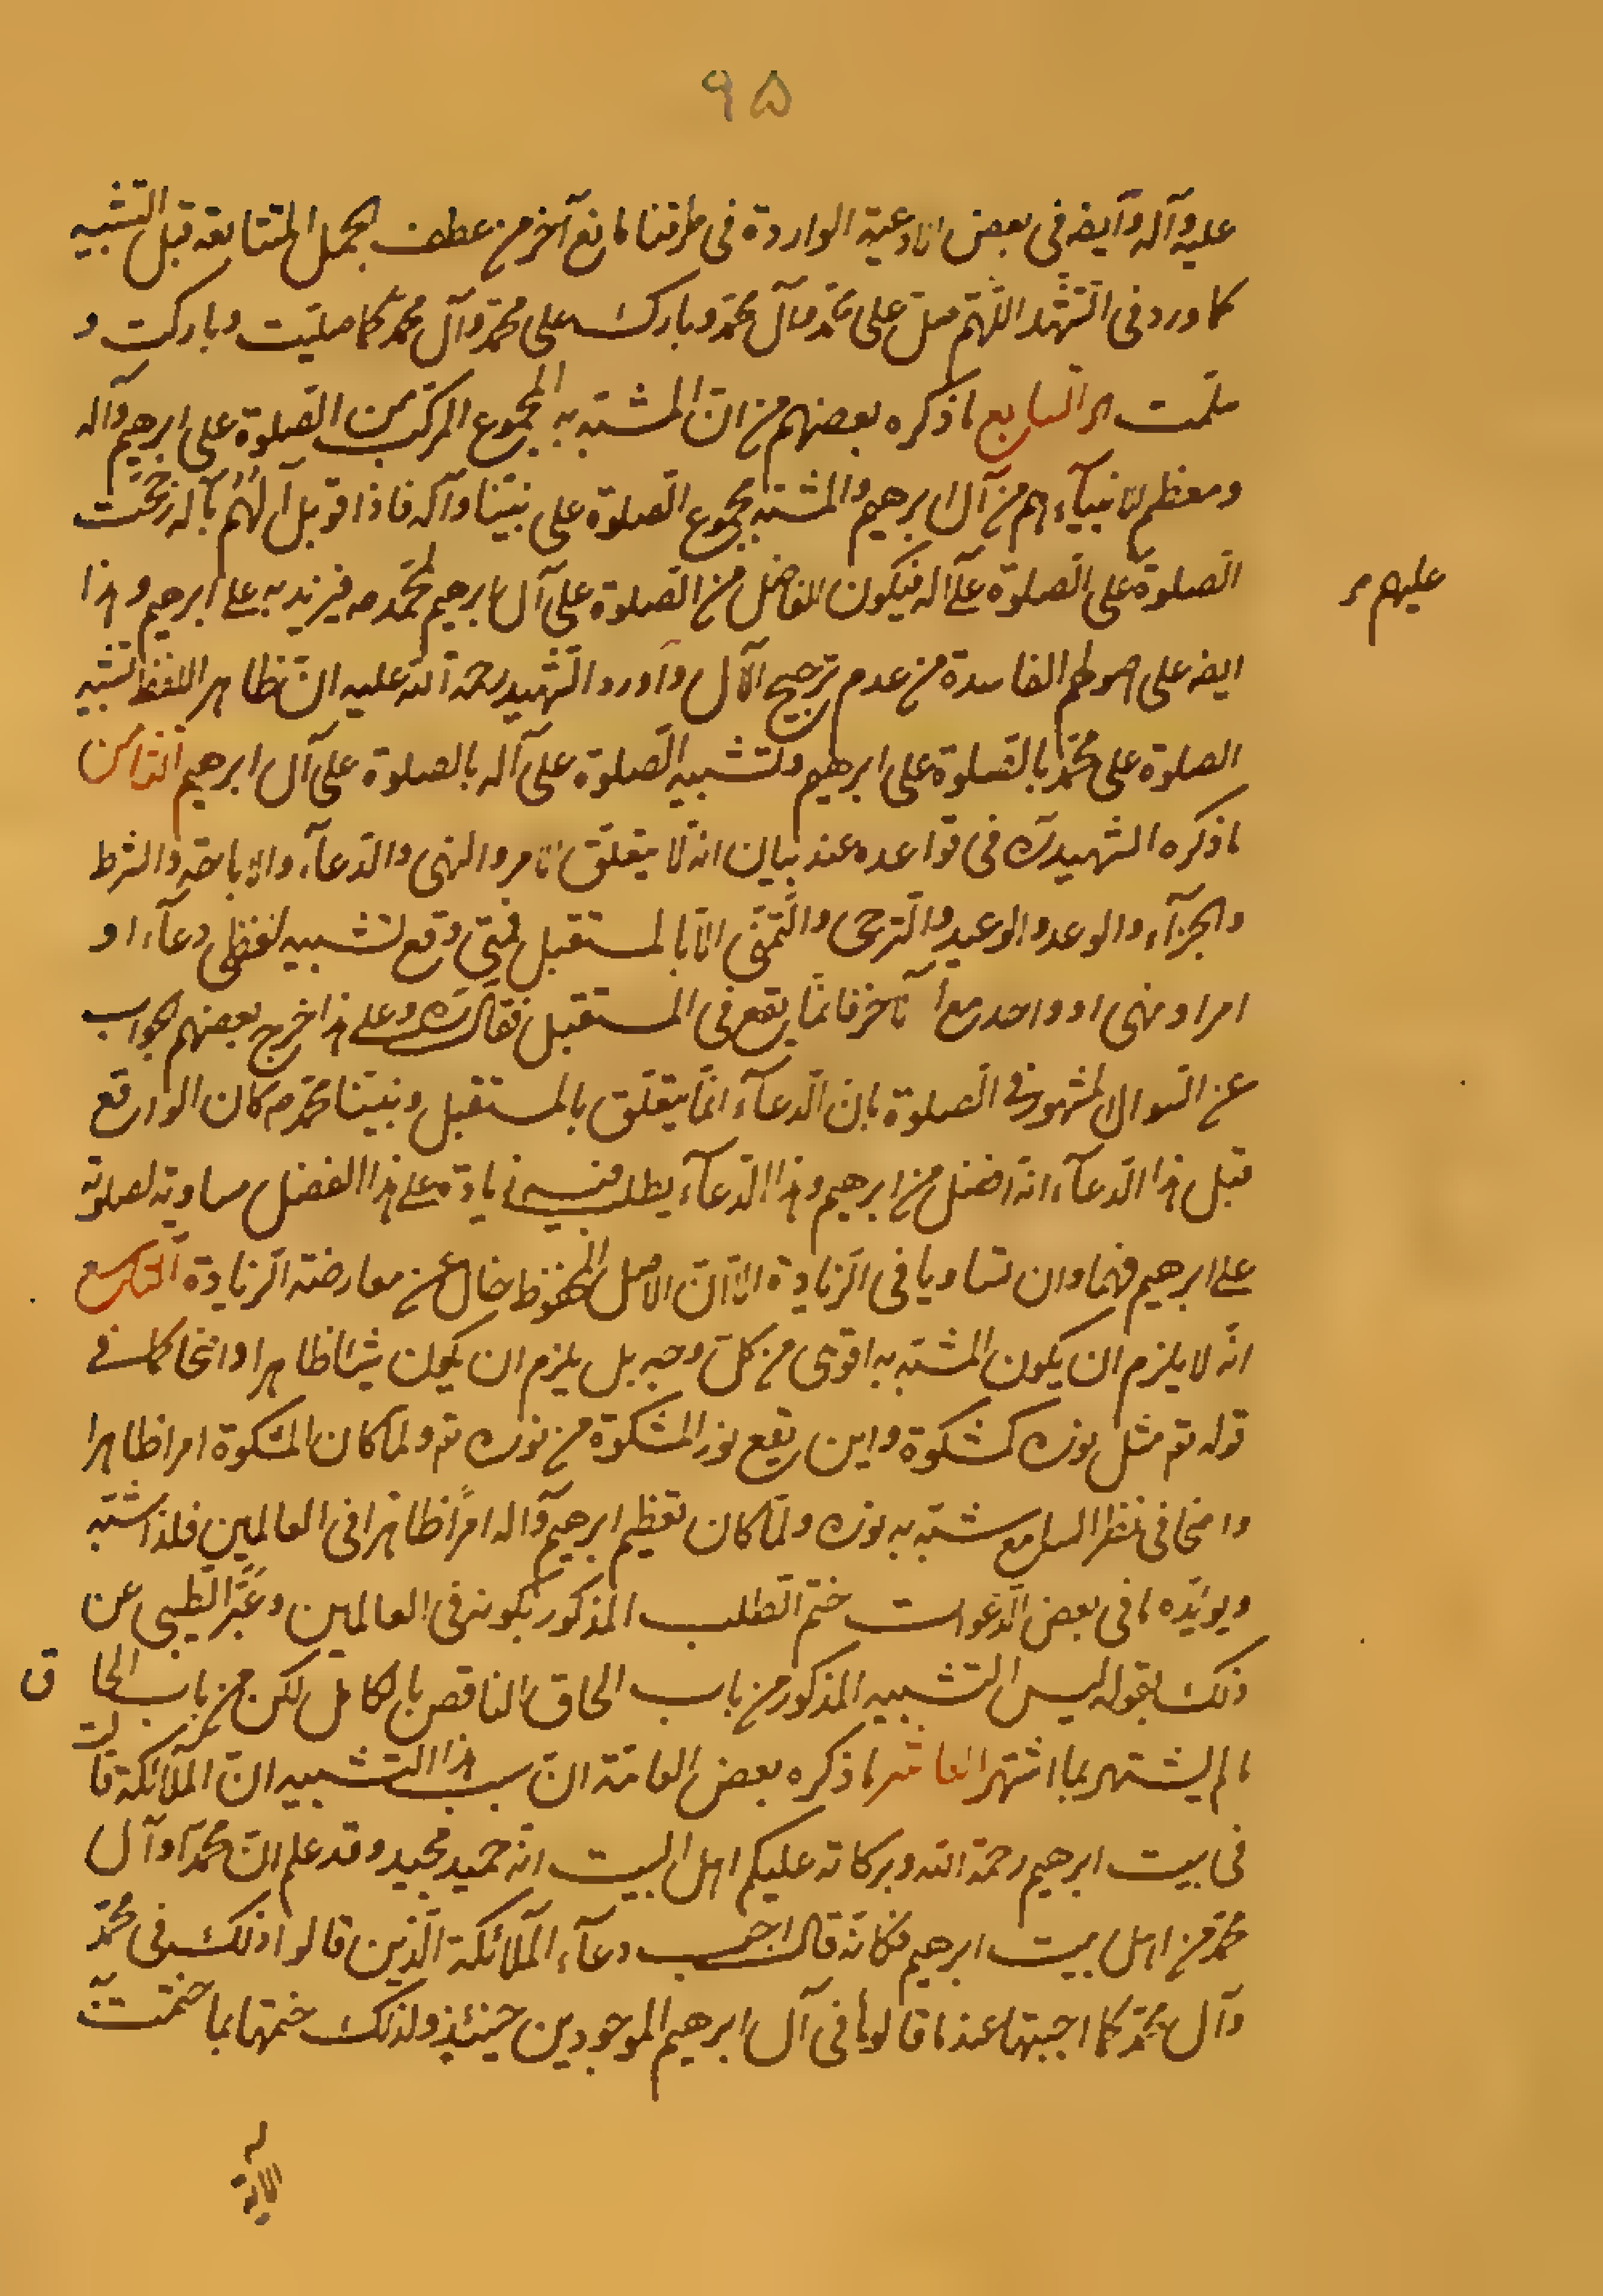 ۹۵
عليه وآله وآيضه فى بعض الادعية الواردة فى طرقنا مانع آخر من عطف الجمل المتتابعه قبل التشبيه
كما ورد فى التشهد اللهم صل على محمد وآل محمد وبارك على محمد وآل محمد كما صليت وباركت و
سلمت الخ السابع ما ذكره بعضهم من ان المشبه به المجموع المركب من الصلوة على ابرهيم وآله
ومعظم الانبيآء هم من آل ابرهيم والمشبه مجموع الصلوة على نبينا وآله فاذا قوبل آلهم بآله رجحت
الصلوة على الصلوة على آله فيكون الفاضل من الصلوة على آل ابرهيم لمحمد ص فيزيد به على ابرهيم وهذا
عليهم م
ايضه على اصولهم الفاسدة من عدم ترجيح الآل وأورد الشهيد رحمة الله عليه ان ظاهر اللفظ تشبيه
الصلوة على محمد بالصلوة على ابرهيم وتشبيه الصلوة على آله بالصلوة على آل ابرهيم الثامن
ما ذكره الشهيد ره فى قواعده عند بيان انه لا يتعلق الامر والنهى والدعآء والاباحة والشرط
والجزآء والوعد والوعيد والترجى والتمنى الا بالمستقبل فمتى وقع تشبيه لفظى دعآء او
امر او نهى او واحد مع الآخر فانما يقع فى المستقبل فقال ره وعلى هذا خرج بعضهم الجواب
عن السوال المشهور فى الصلوة بان الدعآء انما يتعلق بالمستقبل ونبينا محمد ص كان الواقع
قبل هذا الدعآء انه افضل من ابرهيم وهذا الدعآء يطلب فيه زيادة على هذا الفضل مساوية لصلوته
على ابرهيم فهما وان تساويا فى الزيادة الا ان الاصل المحفوظ خال عن معارضة الزيادة التاسع
انه لا يلزم ان يكون المشبه به اقوى من كل وجه بل يلزم ان يكون شيئا ظاهرا واضحا كما فى
قوله تعه مثل نوره كمشكوة واين يقع نور المشكوة من نوره تعه ولما كان المشكوة امرا ظاهرا
واضحا فى نظر السامع شبه به نوره ولما كان تعظيم ابرهيم وآله امرا ظاهرا فى العالمين فلذا شبه
ويؤيده ما فى بعض الدعوات ختم الطلب المذكور بكونه فى العالمين وعبر الطيبى عن
ذلك بقوله ليس التشبيه المذكور من باب الحاق الناقص بالكامل لكن من باب الحاق
ما لم يشتهر بما اشتهر العاشر ما ذكره بعض العامة ان سبب هذا التشبيه ان الملآئكة قالت
فى بيت ابرهيم رحمة الله وبركاته عليكم اهل البيت انه حميد مجيد وقد علم ان محمدا وآل
محمد من اهل بيت ابرهيم فكانه قال اجب دعآء الملآئكة الذين قالوا ذلك فى محمد
وآل محمد كما اجبتها عند ما قالوها فى آل ابرهيم الموجودين حينئذ ولذلك ختمها بما ختمت